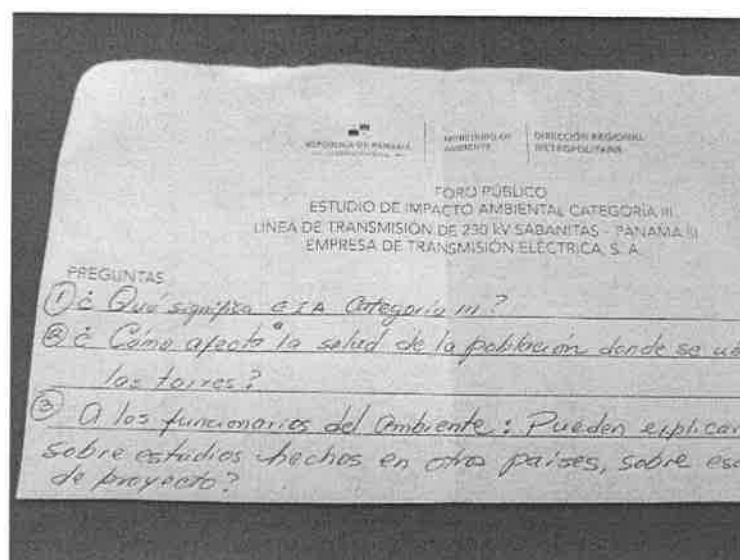 REPÚBLICA DE PANAMÁ
MINISTERIO DE
AMBIENTE
DIRECCIÓN REGIONAL
METROPOLITANA
FORO PÚBLICO
ESTUDIO DE IMPACTO AMBIENTAL CATEGORÍA III
LINEA DE TRANSMISIÓN DE 230 kV SABANITAS - PANAMA III
EMPRESA DE TRANSMISIÓN ELÉCTRICA, S. A.
PREGUNTAS
① ¿ Qué significa EIA Categoría III?
② ¿ Cómo afecta a la salud de la población donde se ub
las torres?
③ A los funcionarios del Ambiente: Pueden explicar
sobre estudios hechos en otros países, sobre es
de proyecto?